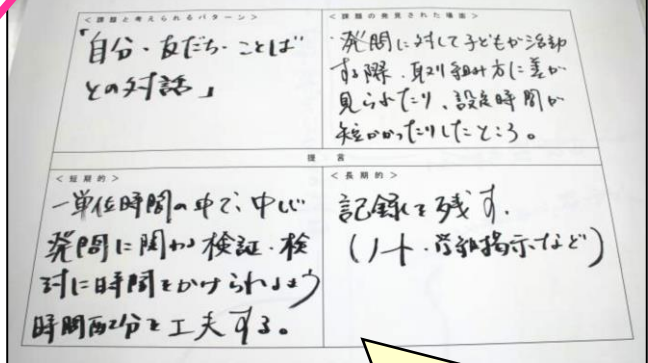 ＜課題と考えられるパターン＞
「自分・友だち・ことば
との対話」
＜課題の発見された場面＞
・発問に対して子どもが活動
する際、取り組み方に差が
見られたり、設定時間が
短かかったりしたところ。
提言
＜短期的＞
一単位時間の中で、中心
発問に関わる検証・検
討に時間をかけられるよう
時間配分を工夫する。
＜長期的＞
記録を残す。
（ノート・学級掲示など）